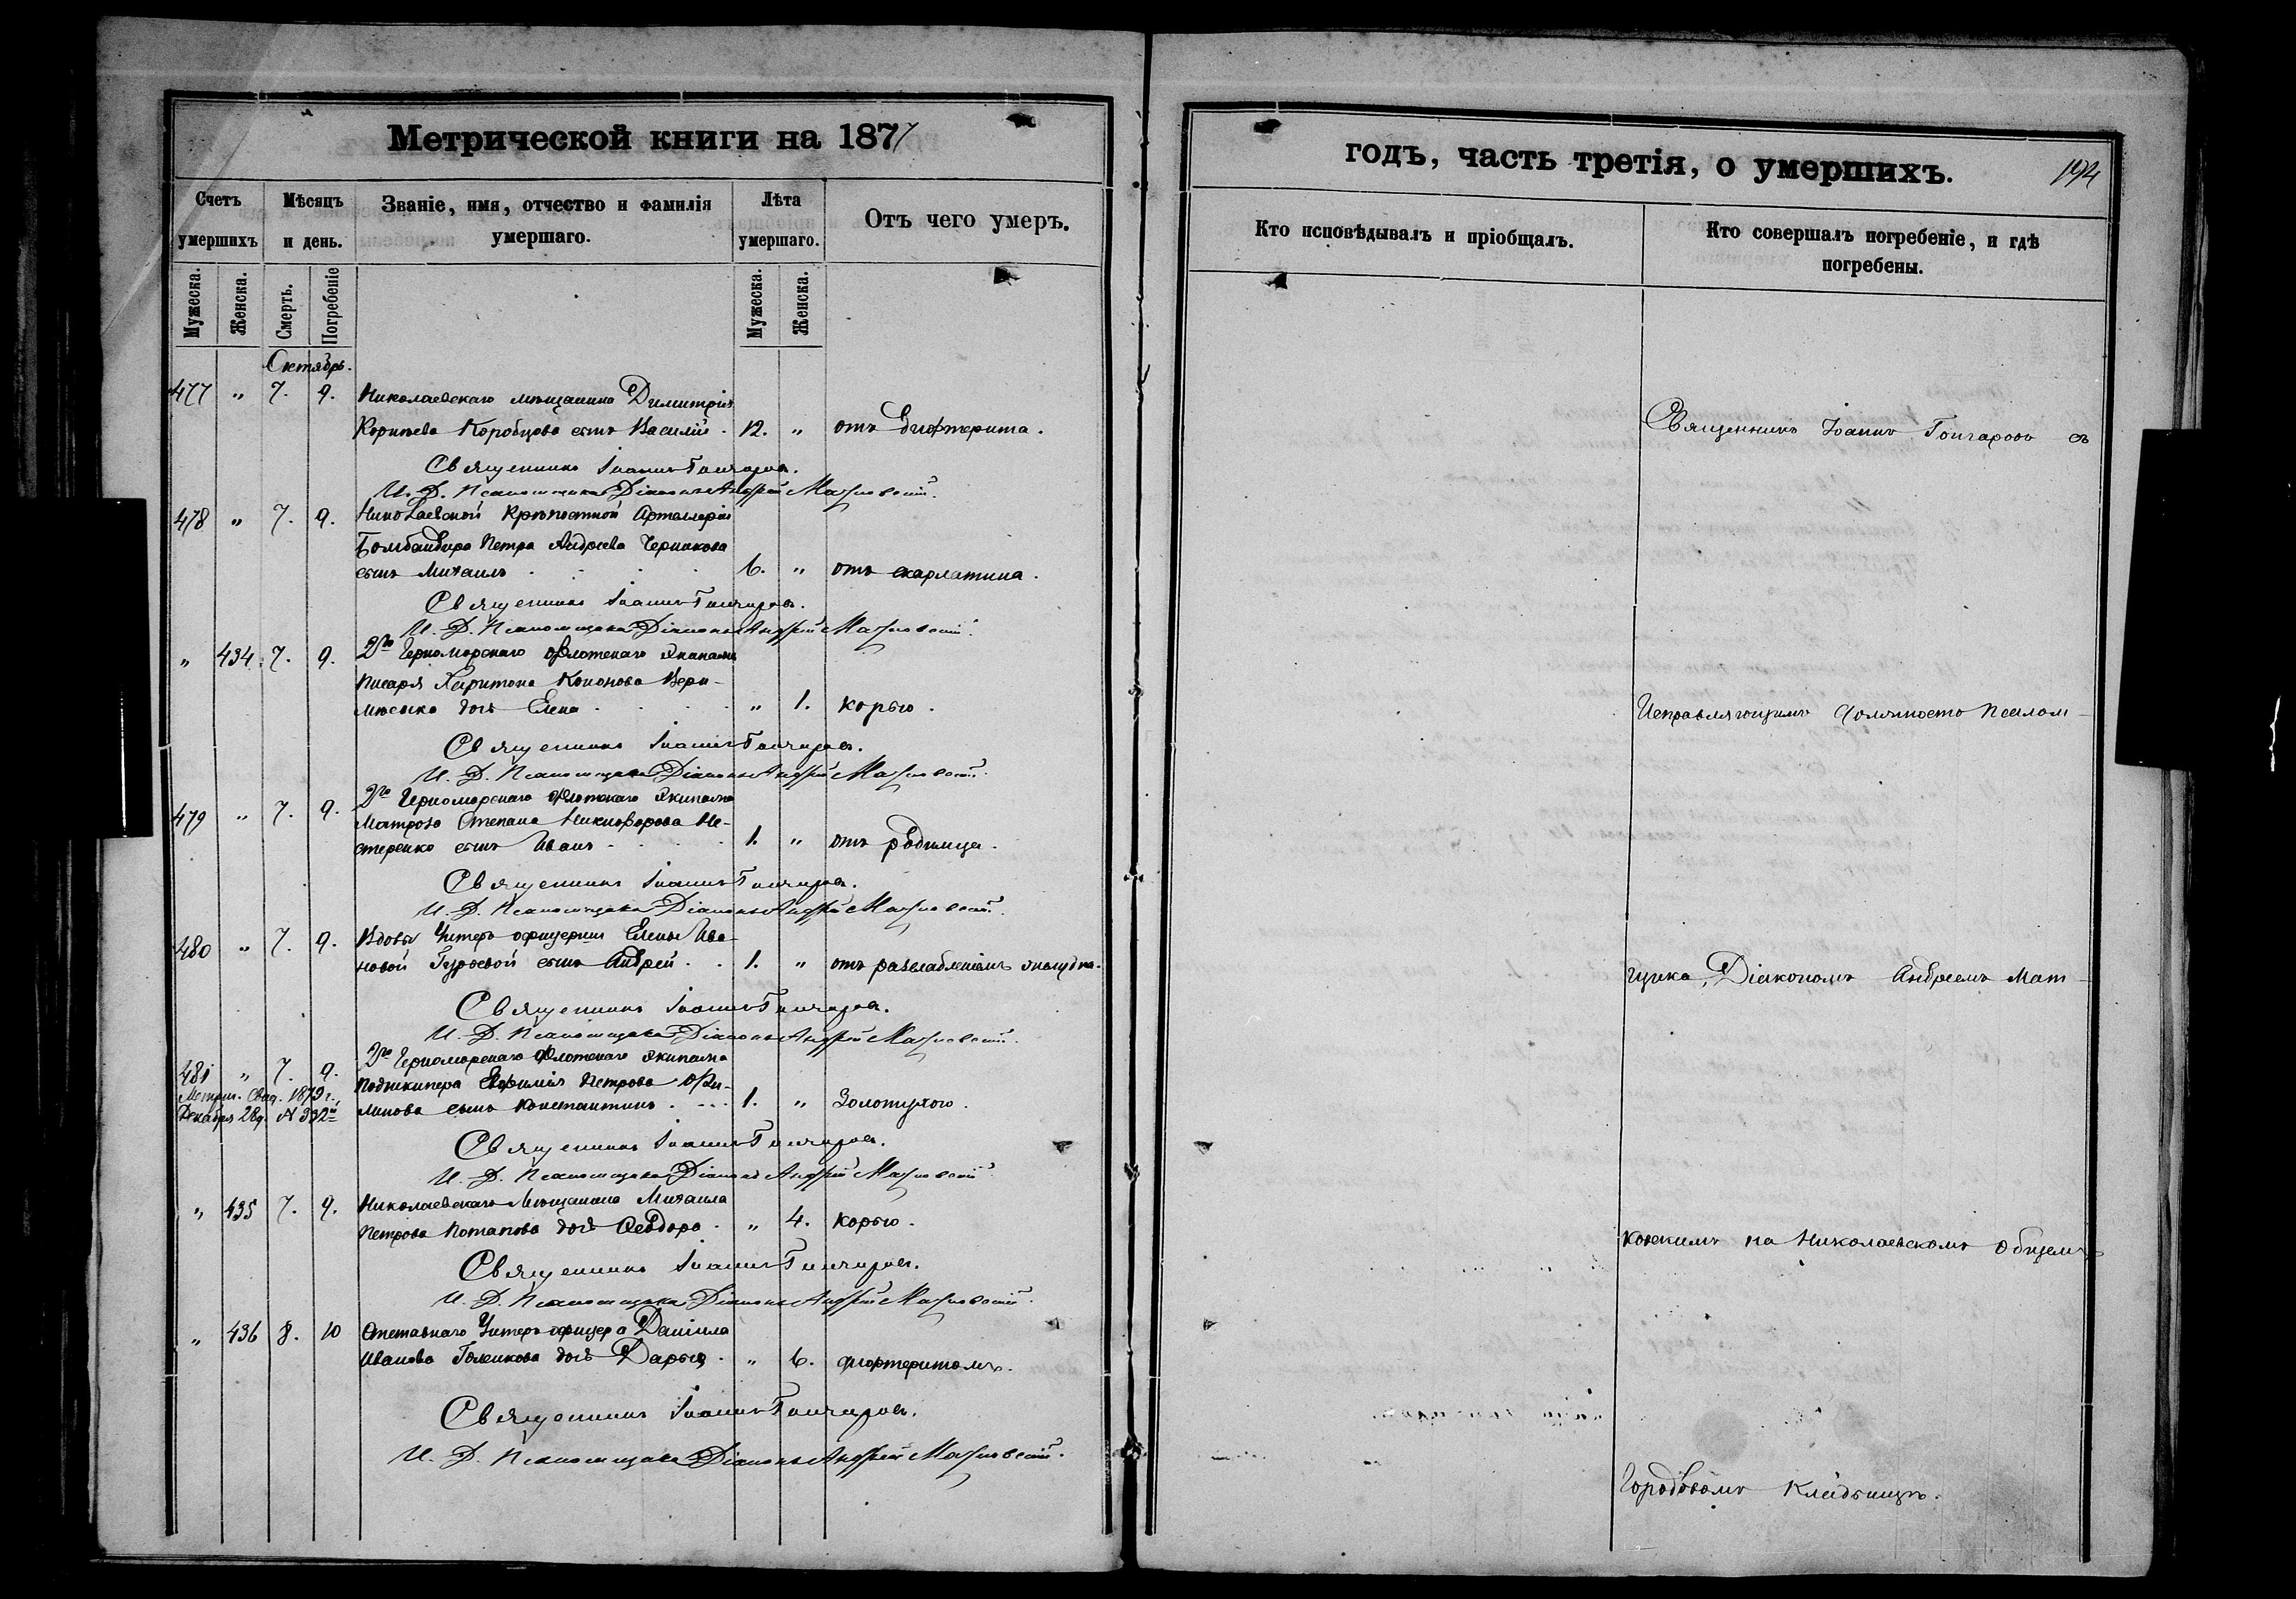 Метрической книги на 1877
годъ, часть третія, о умершихъ.
194
Счетъ умершихъ
Мѣсяцъ и день.
Званіе, имя, отчество и фамилія умершаго.
Лѣта умершаго.
Отъ чего умеръ.
Кто исповѣдывалъ и пріобщалъ.
Кто совершалъ погребеніе, и гдѣ погребены.
Мужеска.
Женска.
Смерть.
Погребеніе
Мужеска.
Женска.
Октябрь.
477 " 7. 9. Николаевскаго мѣщанина Димитрія
Корнѣева Коробцова сынъ Василій. 12. " отъ дифтерита.
Священникъ Іоаннъ Гончаровъ.
И. Д. Псаломщика Діаконъ Андрей
478 " 7. 9. Николаевской Крѣпостной Артиллеріи
Бомбандира Петра Андреева Черникова
сынъ Михаилъ 6. " отъ скарлатина.
Священникъ Іоаннъ Гончаровъ.
И. Д. Псаломщика Діаконъ Андрей
" 434. 7. 9. 2го Черноморскаго Флотскаго Экипажа
Писаря Харитона Кононова Вери-
дочь Елена " 1. корью.
Священникъ Іоаннъ Гончаровъ.
И. Д. Псаломщика Діаконъ Андрей
479 " 7. 9. 2го Черноморскаго Флотскаго Экипажа
Матроза Степана Никифорова Не-
стеренко сынъ Иванъ 1. " отъ родимца.
Священникъ Іоаннъ Гончаровъ.
И. Д. Псаломщика Діаконъ Андрей
480 " 7. 9. Вдовы Унтеръ офицерши Елены Ива-
новой сынъ Андрей 1. " отъ разслабленіемъ желудка.
Священникъ Іоаннъ Гончаровъ.
И. Д. Псаломщика Діаконъ Андрей
481 " 7. 9. 2го Черноморскаго Флотскаго Экипажа
Метрич. Свид. 1879 г. Подшкипера Евфимія Петрова Фи-
Декабря 28д. № 332й липова сынъ Константинъ 1. " Золотухою.
Священникъ Іоаннъ Гончаровъ.
И. Д. Псаломщика Діаконъ Андрей
" 435 7. 9. Николаевскаго Мѣщанина Михаила
Петрова Потапова дочь Ѳеодора " 4. корью.
Священникъ Іоаннъ Гончаровъ.
И. Д. Псаломщика Діаконъ Андрей
" 436 8. 10 Отставнаго Унтеръ офицера Даніила
Иванова Голенкова дочь Дарья " 6. дифтеритомъ.
Священникъ Іоаннъ Гончаровъ.
И. Д. Псаломщика Діаконъ Андрей
Священникъ Іоаннъ Гончаровъ съ
Исправляющимъ должность Псалом-
щика, Діакономъ Андреемъ Мат-
ковскимъ на Николаевскомъ общемъ
Городовомъ Кладбищѣ.